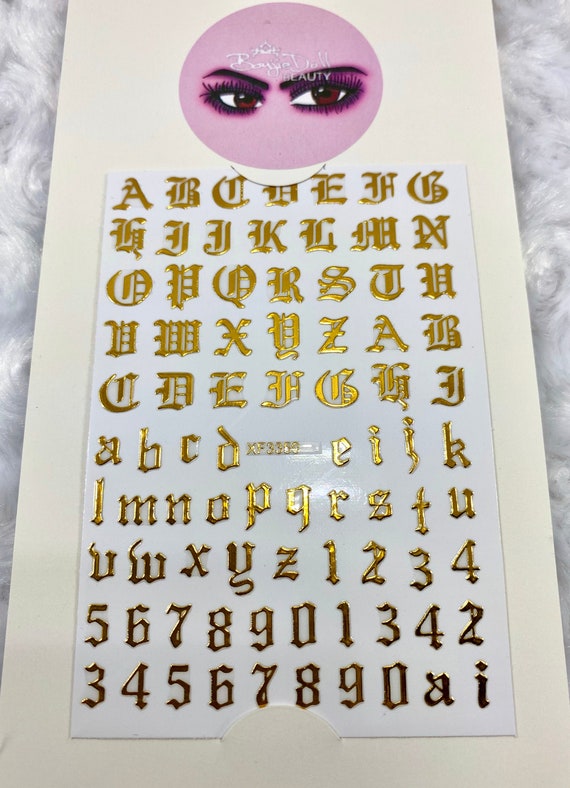 Doll
BEAUTY
A B C D E F G
H I J K L M N
O P Q R S T U
V W X Y Z A B
C D E F G H I
a b c d e i j k
l m n o p q r s t u
v w x y z 1 2 3 4
5 6 7 8 9 0 1 3 4 2
3 4 5 6 7 8 9 0 a i